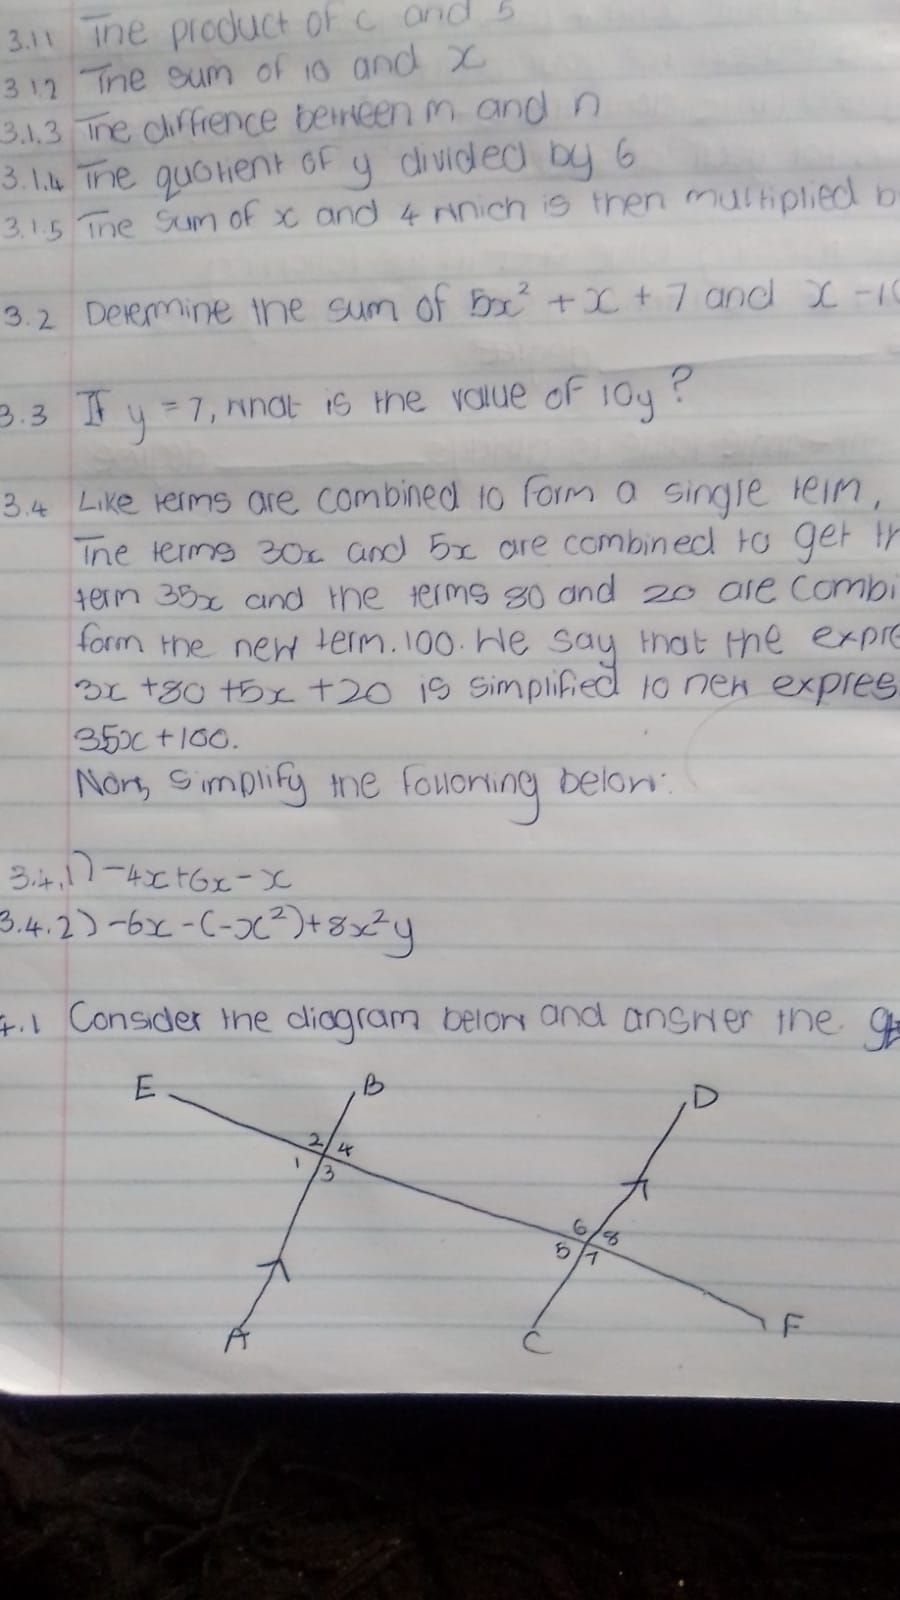 3.11 The product of c and 5
3.12 The sum of 10 and x
3.1.3 The diffrence between m and n
3.1.4 The quotient of y divided by 6
3.1.5 The sum of x and 4 which is then multiplied b
3.2 Determine the sum of 5x² + x + 7 and x - 10
3.3 If y = 7, what is the value of 10y?
3.4 Like terms are combined to form a single term,
The terms 30x and 5x are combined to get th
term 35x and the terms 80 and 20 are combi
form the new term. 100. We say that the expre
3x + 80 + 5x + 20 is simplified to new expres
35x + 100.
Now, simplify the following below:
3.4.1) -4x + 6x - x
3.4.2) -6x - (-x²) + 8x²y
4.1 Consider the diagram below and answer the
E B D
2 4
1 3
6 8
5 7
A C F